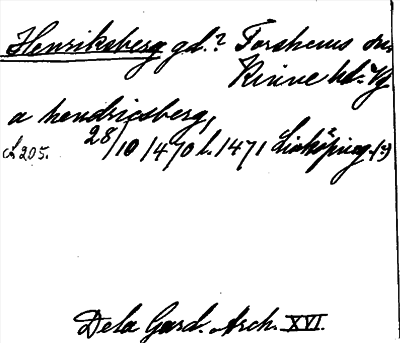 Henriksberg gd.? Forshems sn,
Kinne hd. Vg
a hendricsberg,
28/10 1470 l. 1471 Linköping (?)
L 205.
Dela Gard. Arch. XVI.